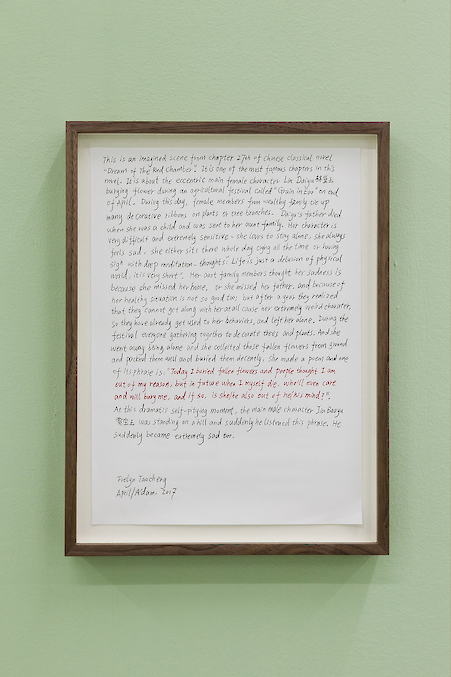 This is an imagined scene from chapter 27th of chinese classical novel
"Dream of The Red Chamber". It is one of the most famous chapters in this
novel. It is about the eccentric main female character Lin Daiyu
burying flower during an agricultural festival called "Grain in Ear" on end
of April. During this day, female members from wealthy family tie up
many decorative ribbons on plants or tree branches. Daiyu's father died
when she was a child and was sent to her aunt family. Her character is
very difficult and extremely sensitive - she loves to stay alone, she always
feels sad. she either sits there whole day crying all the time or having
sigh with deep meditation-thoughts: "Life is just a delusion of physical
world, it is very short". Her aunt family members thought her sadness is
because she missed her home, or she missed her father, and because of
her healthy situation is not so good too; but after a year they realized
that they cannot get along with her at all cause her extremely weird character,
so they have already get used to her behaviors, and left her alone. During the
festival everyone gathering together to decorate trees and plants. And she
went away being alone and she collected those fallen flowers from ground
and packed them well and buried them decently. she made a poem and one
of its phrase is: "Today I buried fallen flowers and people thought I am
out of my reason, but in future when I myself die, who'll even care
and will bury me, and if so, is she/he also out of he/his mind?".
At this dramatic self-pitying moment, the main male character Jia Baoyu
was standing on a hill and suddenly he listened this phrase. He
suddenly became extremely sad too.
Evelyn Taocheng
April/A'dam. 2017